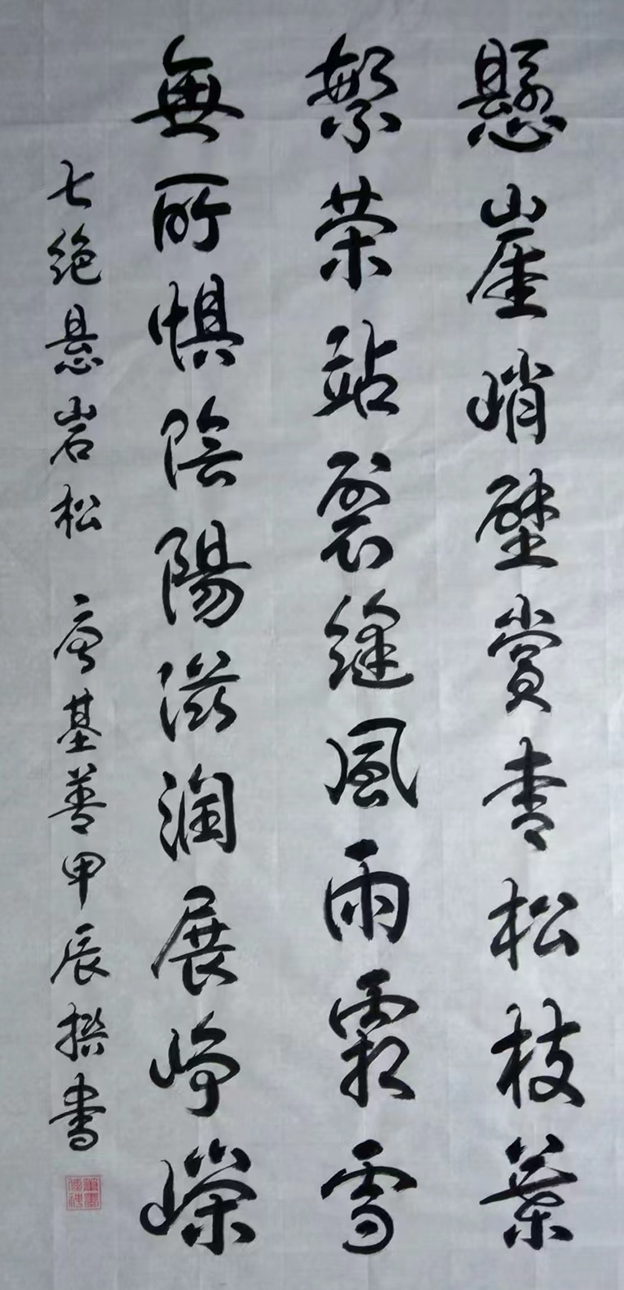 懸崖峭壁賞青松枝葉
繁荣站裂縫風雨霜雪
無所懼陰陽滋潤展崢嶸
七絕悬岩松 唐基善甲辰撰書